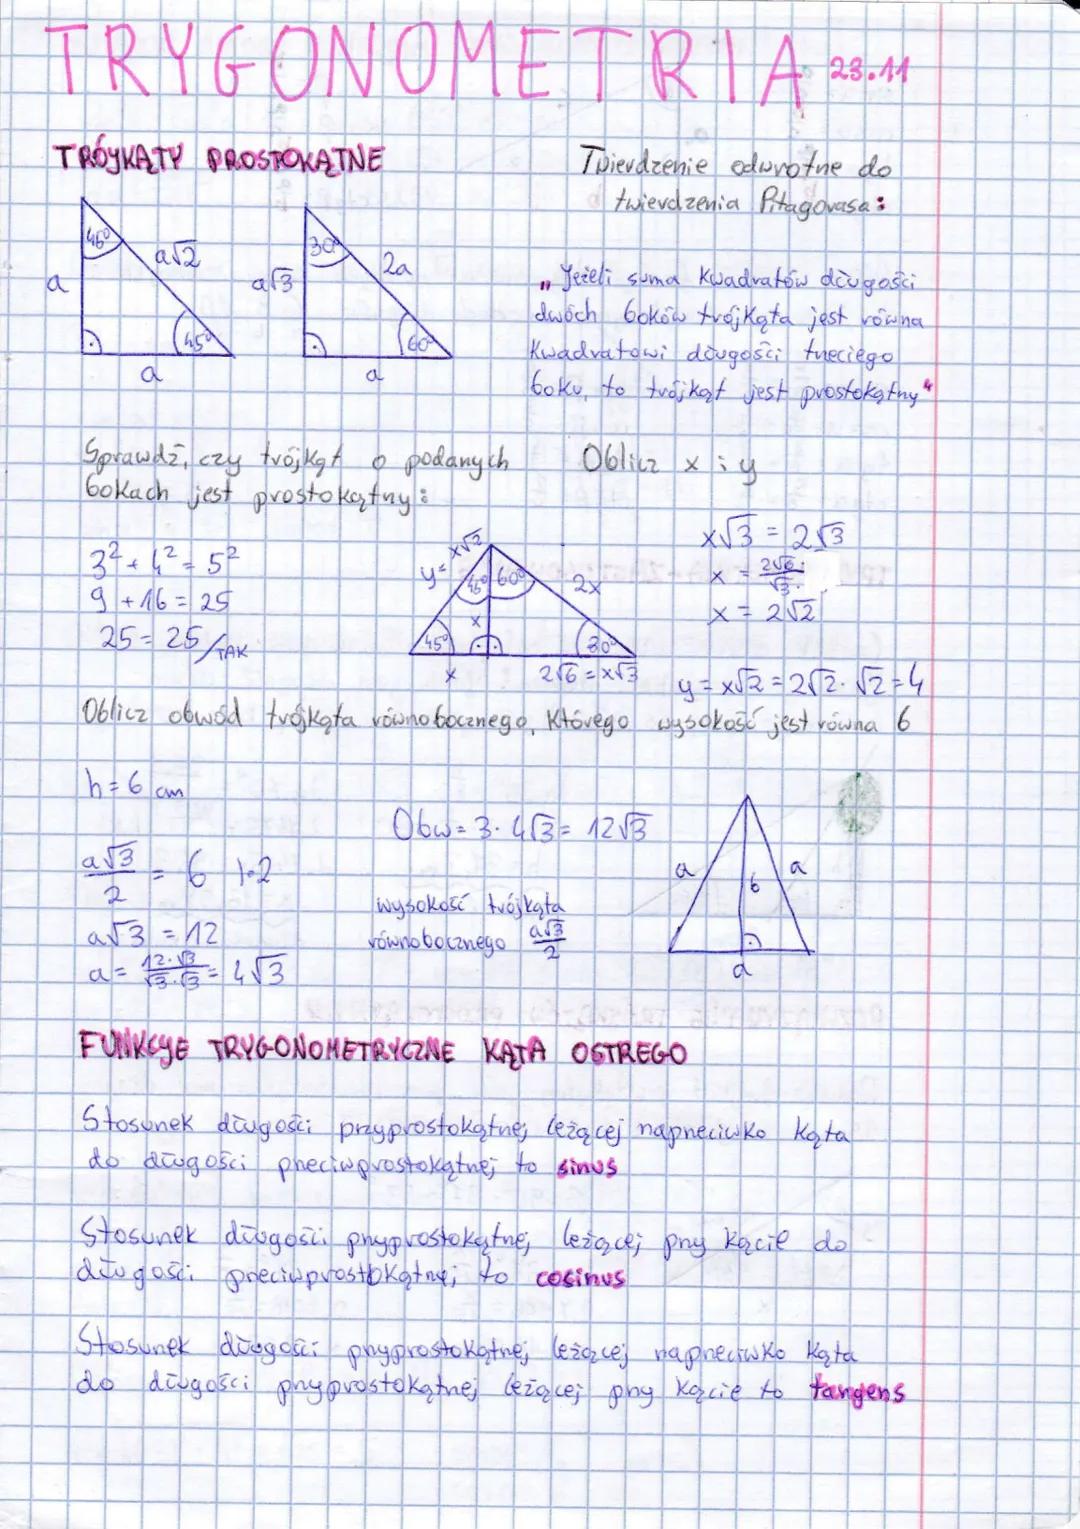 TRYGONOMETRIA 23.11
TRÓJKĄTY PROSTOKĄTNE
45°
a√2
a
45°
a
30°
2a
a√3
60°
a
Twierdzenie odwrotne do
twierdzenia Pitagorasa:
„Jeżeli suma kwadratów długości
dwóch boków trójkąta jest równa
kwadratowi długości trzeciego
boku, to trójkąt jest prostokątny"
Sprawdź, czy trójkąt o podanych
bokach jest prostokątny:
3² + 4² = 5²
9 + 16 = 25
25 = 25 /TAK
Oblicz x i y
y = x√2
45° 60°
2x
x
45°
30°
x
2√6 = x√3
x√3 = 2√3
x = 2√6 / √3
x = 2√2
y = x√2 = 2√2 · √2 = 4
Oblicz obwód trójkąta równobocznego, którego wysokość jest równa 6
h = 6 cm
a√3 / 2 = 6 |·2
a√3 = 12
a = 12·√3 / √3·√3 = 4√3
Obw = 3 · 4√3 = 12√3
wysokość trójkąta
równobocznego a√3 / 2
a
6
a
a
FUNKCJE TRYGONOMETRYCZNE KĄTA OSTREGO
Stosunek długości przyprostokątnej leżącej naprzeciwko kąta
do długości przeciwprostokątnej to sinus
Stosunek długości przyprostokątnej leżącej przy kącie do
długości przeciwprostokątnej to cosinus
Stosunek długości przyprostokątnej leżącej naprzeciwko kąta
do długości przyprostokątnej leżącej przy kącie to tangens